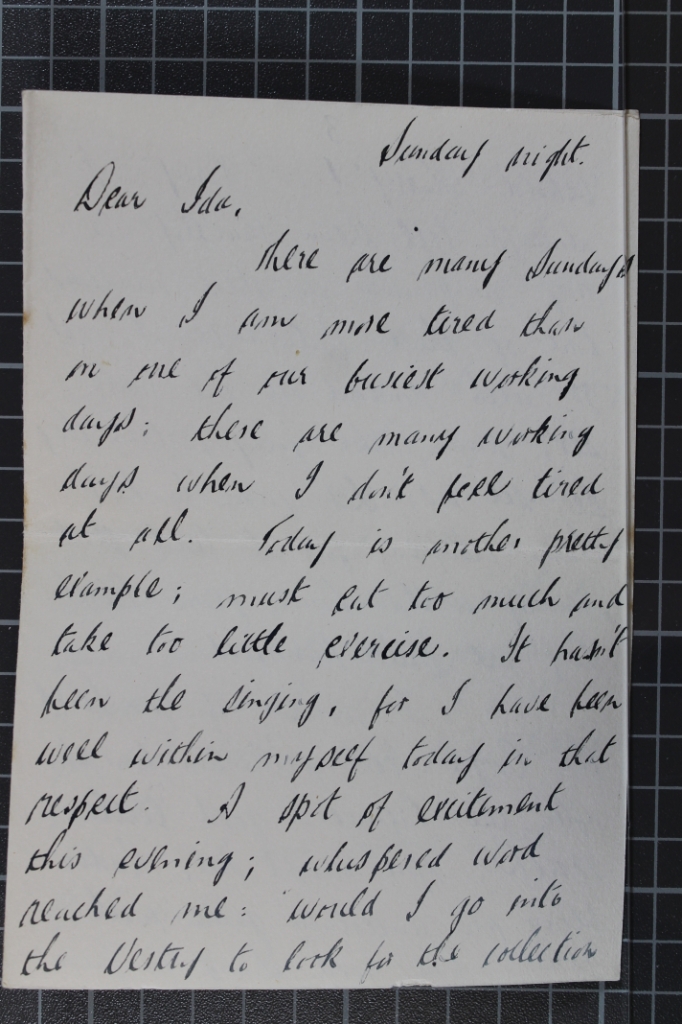 Sunday night.
Dear Ida,
There are many Sundays
when I am more tired than
on one of our busiest working
days; there are many working
days when I don't feel tired
at all. Today is another pretty
example; must eat too much and
take too little exercise. It hasn't
been the singing, for I have been
well within myself today in that
respect. A spot of excitement
this evening; whispered word
reached me: would I go into
the Vestry to look for the collection